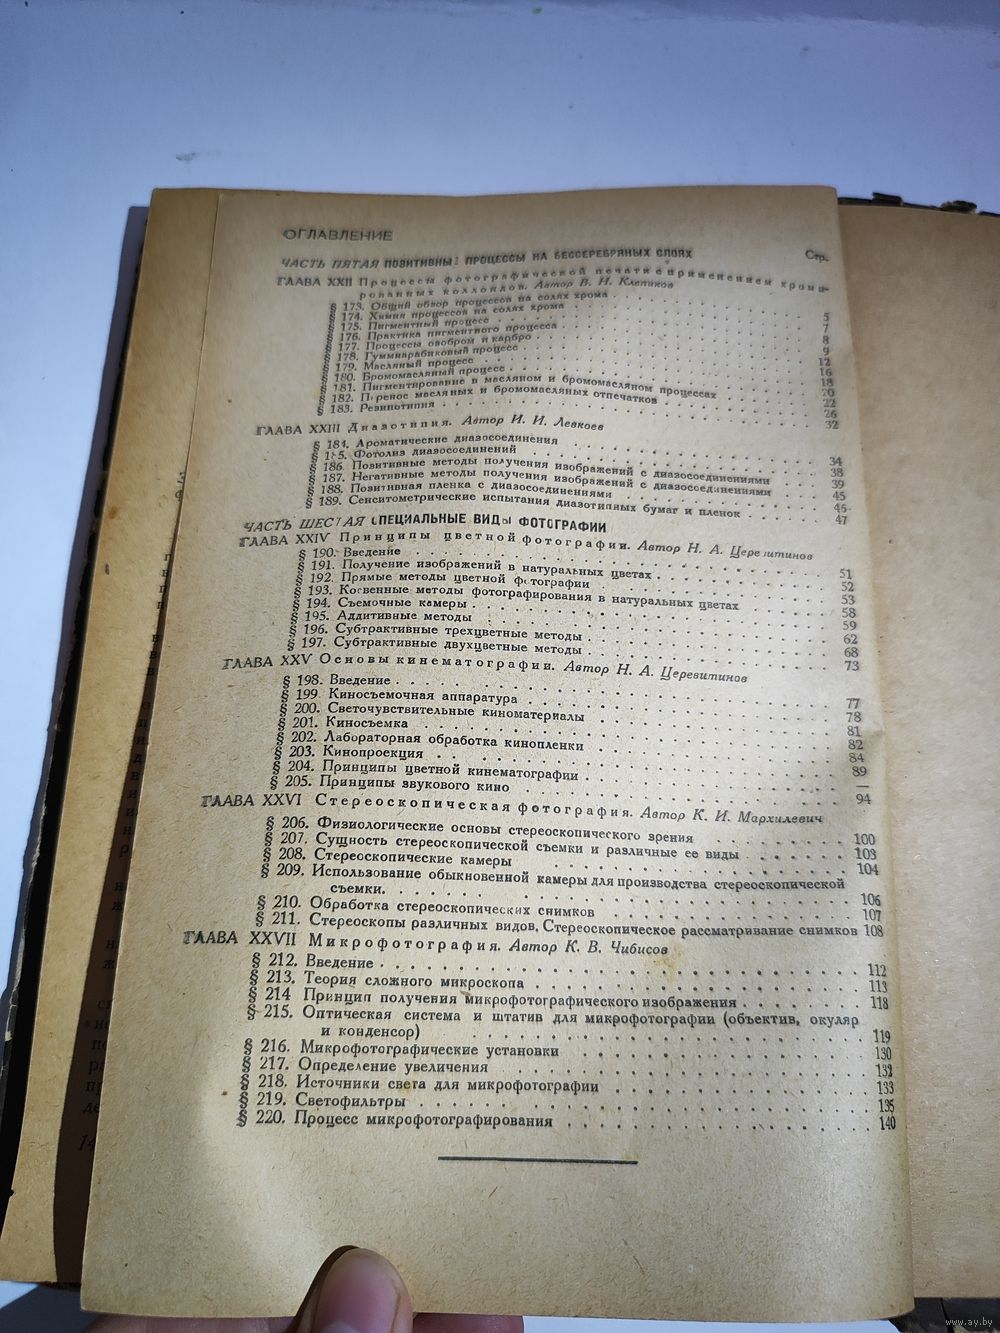 ОГЛАВЛЕНИЕ
ЧАСТЬ ПЯТАЯ ПОЗИТИВНЫ: ПРОЦЕССЫ НА БЕССЕРЕБРЯНЫХ СЛОЯХ Стр.
ГЛАВА XXII Процессы фотографической печати с применением хроми-
рованных коллоидов. Автор В. Н. Клепиков
§ 173. Общий обзор процессов на солях хрома 5
§ 174. Химия процессов на солях хрома 7
§ 175. Пигментный процесс 8
§ 176. Практика пигментного процесса 9
§ 177. Процессы озобром и карбро 12
§ 178. Гуммиарабиковый процесс 16
§ 179. Масляный процесс 18
§ 180. Бромомасляный процесс 20
§ 181. Пигментирование в масляном и бромомасляном процессах 22
§ 182. Перенос масляных и бромомасляных отпечатков 26
§ 183. Резинотипия 32
ГЛАВА XXIII Диазотипия. Автор И. И. Левкоев
§ 184. Ароматические диазосоединения 34
§ 185. Фотолиз диазосоединений 38
§ 186. Позитивные методы получения изображений с диазосоединениями 39
§ 187. Негативные методы получения изображений с диазосоединениями 45
§ 188. Позитивная пленка с диазосоединениями 46
§ 189. Сенситометрические испытания диазотипных бумаг и пленок 47
ЧАСТЬ ШЕСТАЯ СПЕЦИАЛЬНЫЕ ВИДЫ ФОТОГРАФИИ
ГЛАВА XXIV Принципы цветной фотографии. Автор Н. А. Церевитинов
§ 190. Введение 51
§ 191. Получение изображений в натуральных цветах 52
§ 192. Прямые методы цветной фотографии 53
§ 193. Косвенные методы фотографирования в натуральных цветах 58
§ 194. Съемочные камеры 59
§ 195. Аддитивные методы 62
§ 196. Субтрактивные трехцветные методы 68
§ 197. Субтрактивные двухцветные методы 73
ГЛАВА XXV Основы кинематографии. Автор Н. А. Церевитинов
§ 198. Введение 77
§ 199 Киносъемочная аппаратура 78
§ 200. Светочувствительные киноматериалы 81
§ 201. Киносъемка 82
§ 202. Лабораторная обработка кинопленки 84
§ 203. Кинопроекция 89
§ 204. Принципы цветной кинематографии —
§ 205. Принципы звукового кино 94
ГЛАВА XXVI Стереоскопическая фотография. Автор К. И. Мархилевич
§ 206. Физиологические основы стереоскопического зрения 100
§ 207. Сущность стереоскопической съемки и различные ее виды 103
§ 208. Стереоскопические камеры 104
§ 209. Использование обыкновенной камеры для производства стереоскопической
съемки. 106
§ 210. Обработка стереоскопических снимков 107
§ 211. Стереоскопы различных видов, Стереоскопическое рассматривание снимков 108
ГЛАВА XXVII Микрофотография. Автор К. В. Чибисов
§ 212. Введение 112
§ 213. Теория сложного микроскопа 113
§ 214 Принцип получения микрофотографического изображения 118
§ 215. Оптическая система и штатив для микрофотографии (объектив, окуляр
и конденсор) 119
§ 216. Микрофотографические установки 130
§ 217. Определение увеличения 132
§ 218. Источники света для микрофотографии 133
§ 219. Светофильтры 135
§ 220. Процесс микрофотографирования 140
www.ay.by